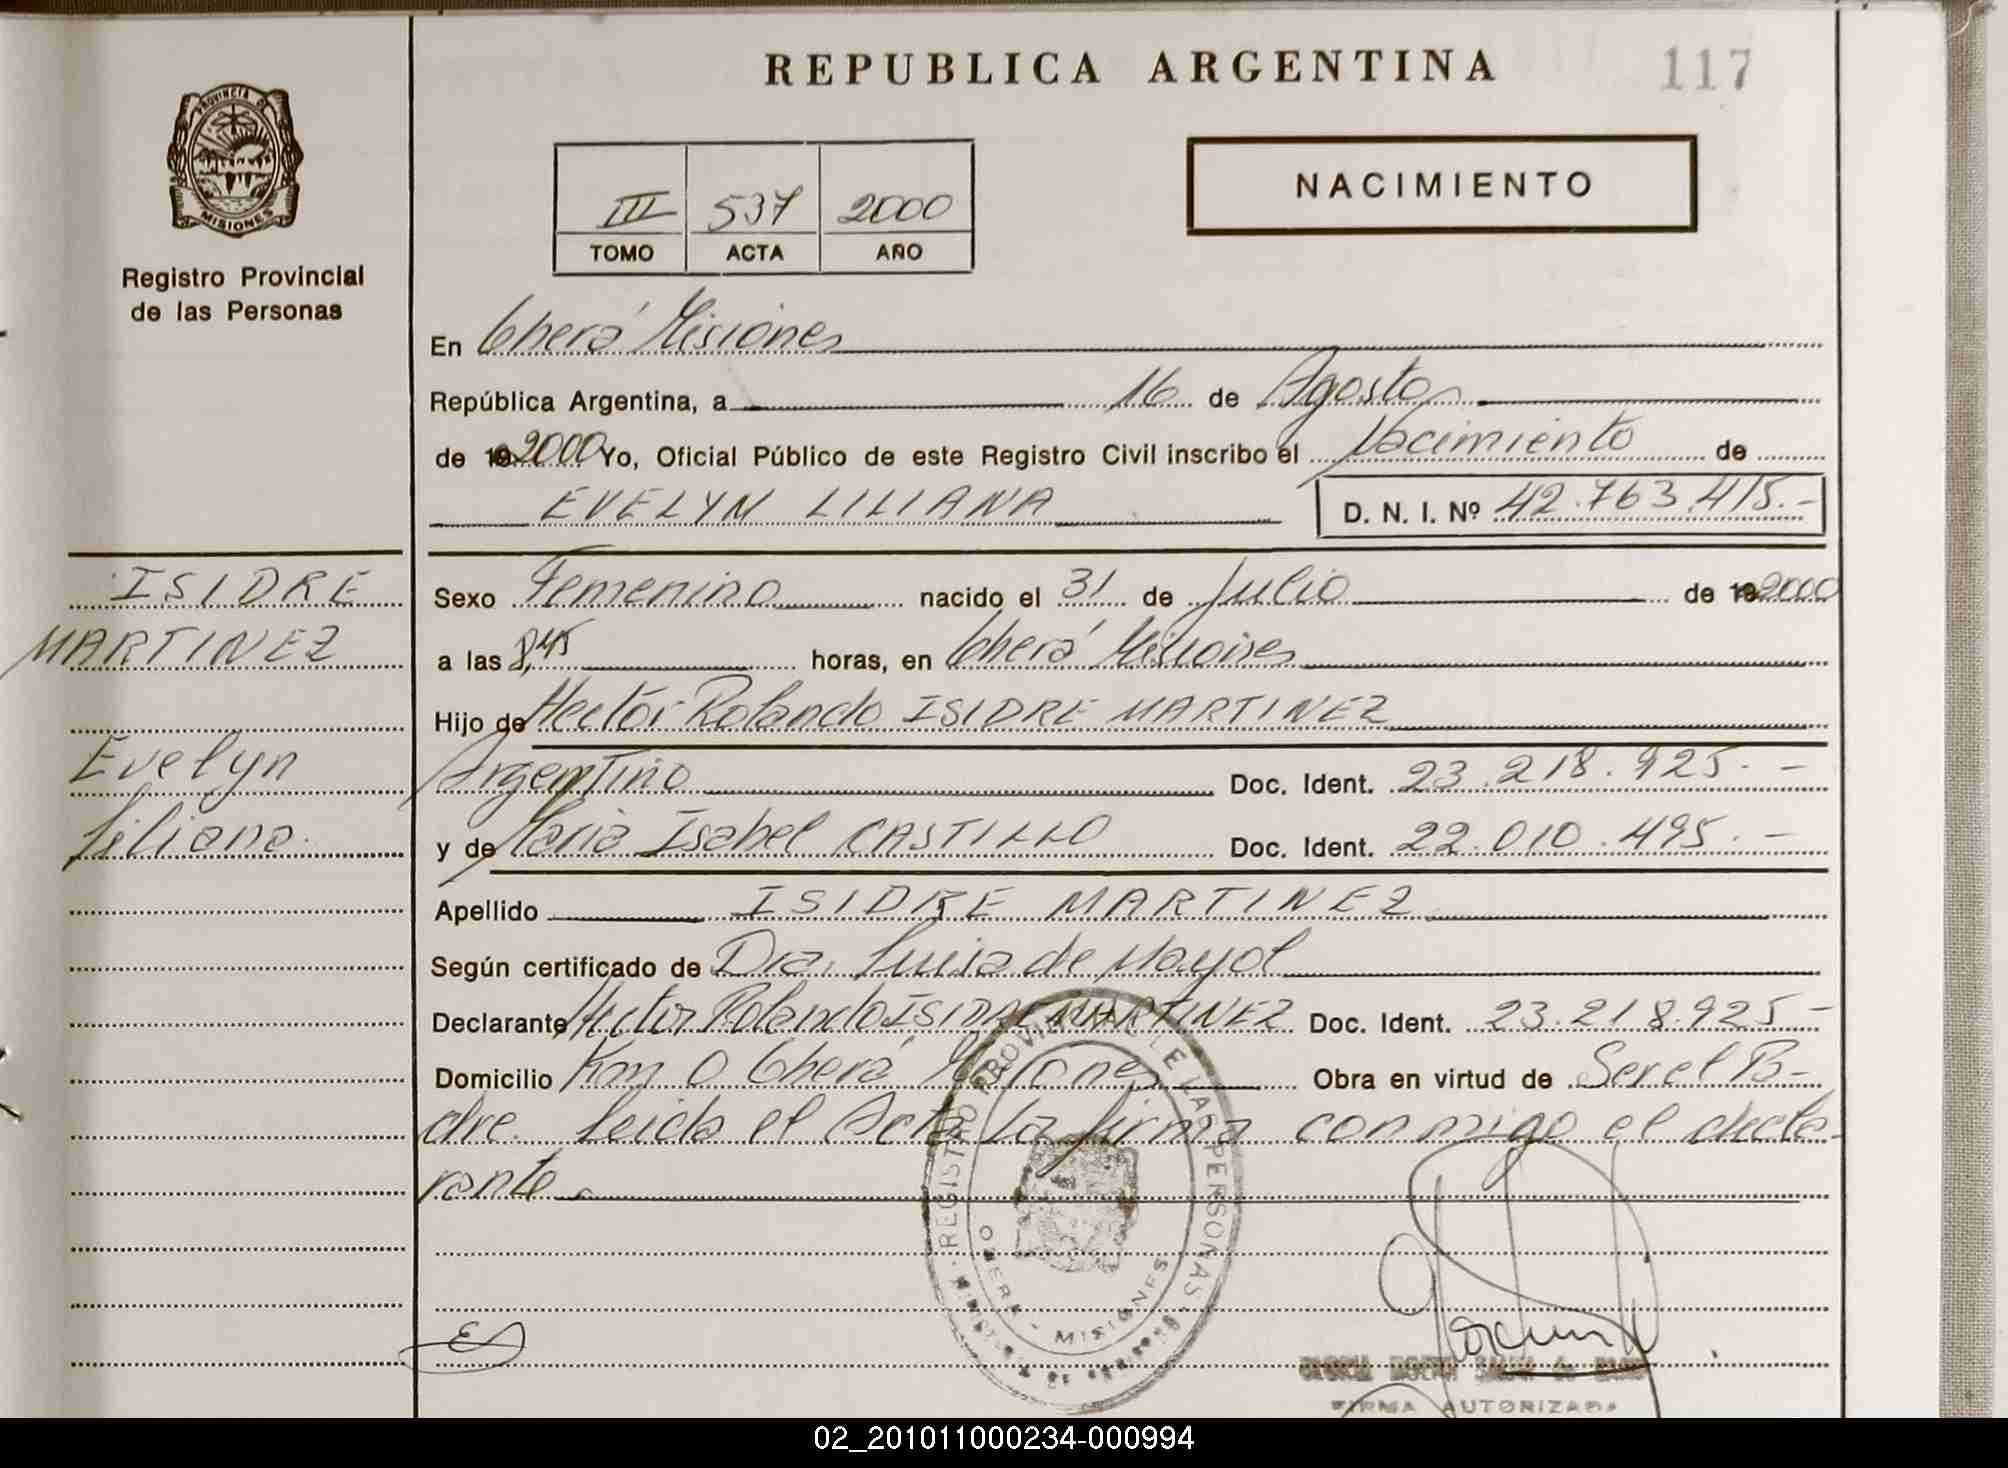 REPUBLICA ARGENTINA
117
PROVINCIA DE
MISIONES
Registro Provincial
de las Personas
III 537 2000
TOMO ACTA AÑO
NACIMIENTO
En Oberá Misiones
República Argentina, a 16 de Agosto
de 19 2000 Yo, Oficial Público de este Registro Civil inscribo el Nacimiento de
EVELYN LILIANA D. N. I. Nº 42.763.415.-
ISIDRE
MARTINEZ
Evelyn
Liliana.
Sexo Femenino nacido el 31 de Julio de 19 2000
a las 8,45 horas, en Oberá Misiones
Hijo de Héctor Rolando ISIDRE MARTINEZ
Argentino Doc. Ident. 23.218.925.-
y de María Isabel CASTILLO Doc. Ident. 22.010.495.-
Apellido ISIDRE MARTINEZ
Según certificado de Dra. Luisa de Mayol
Declarante Hector Rolando ISIDRE MARTINEZ Doc. Ident. 23.218.925-
Domicilio Km 0 Oberá, Misiones Obra en virtud de Ser el P-
dre. Leida el Acta La firma conmigo el decla-
rante
REGISTRO PROVINCIAL DE LAS PERSONAS
OBERA - MISIONES
FIRMA AUTORIZADA
02_201011000234-000994